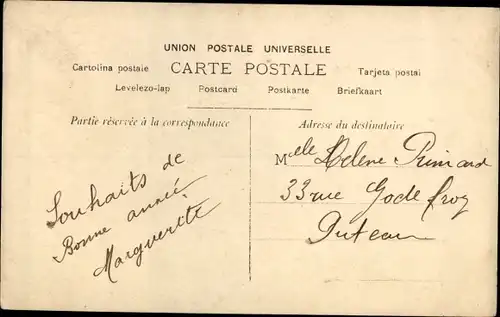 UNION POSTALE UNIVERSELLE
Cartolina postale CARTE POSTALE Tarjeta postal
Levelezo-lap Postcard Postkarte Briefkaart
Partie réservée à la correspondance
Adresse du destinataire
Souhaits de
Bonne année
Marguerite
Melle Helene
33 rue Godefroy
Puteau